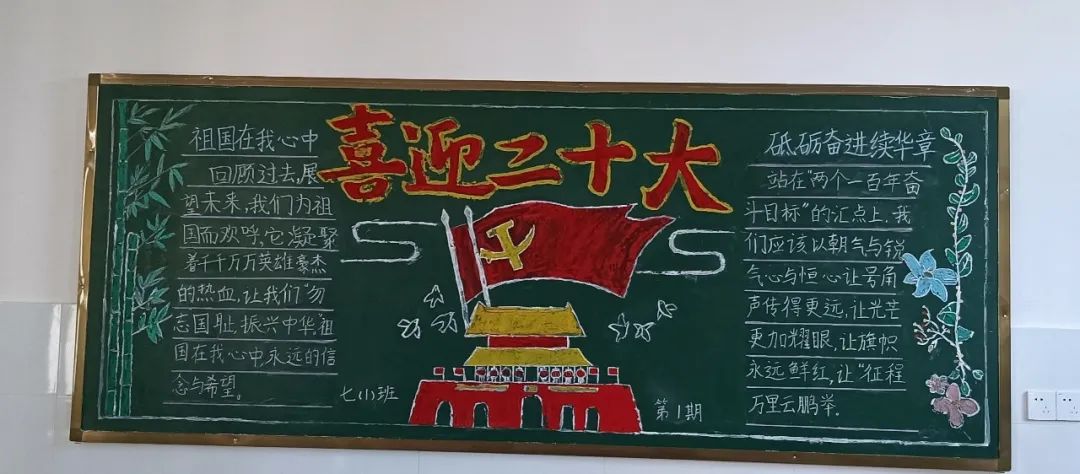 喜迎二十大
祖国在我心中
回顾过去,展
望未来,我们为祖
国而欢呼,它凝聚
着千千万万英雄豪杰
的热血,让我们“勿
忘国耻,振兴中华”祖
国在我心中,永远的信
念与希望。
七(1)班
第1期
砥砺奋进续华章
站在“两个一百年奋
斗目标”的汇点上,我
们应该以朝气与锐
气心与恒心让号角
声传得更远,让光芒
更加耀眼,让旗帜
永远鲜红,让“征程
万里云鹏举.